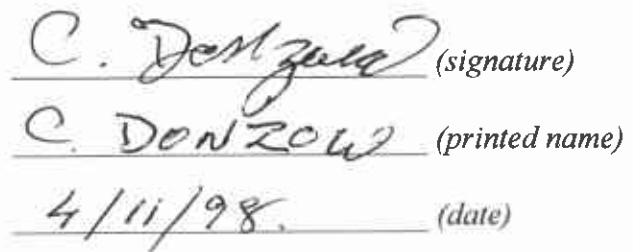 C. Donzow (signature)
C. DONZOW (printed name)
4/11/98. (date)